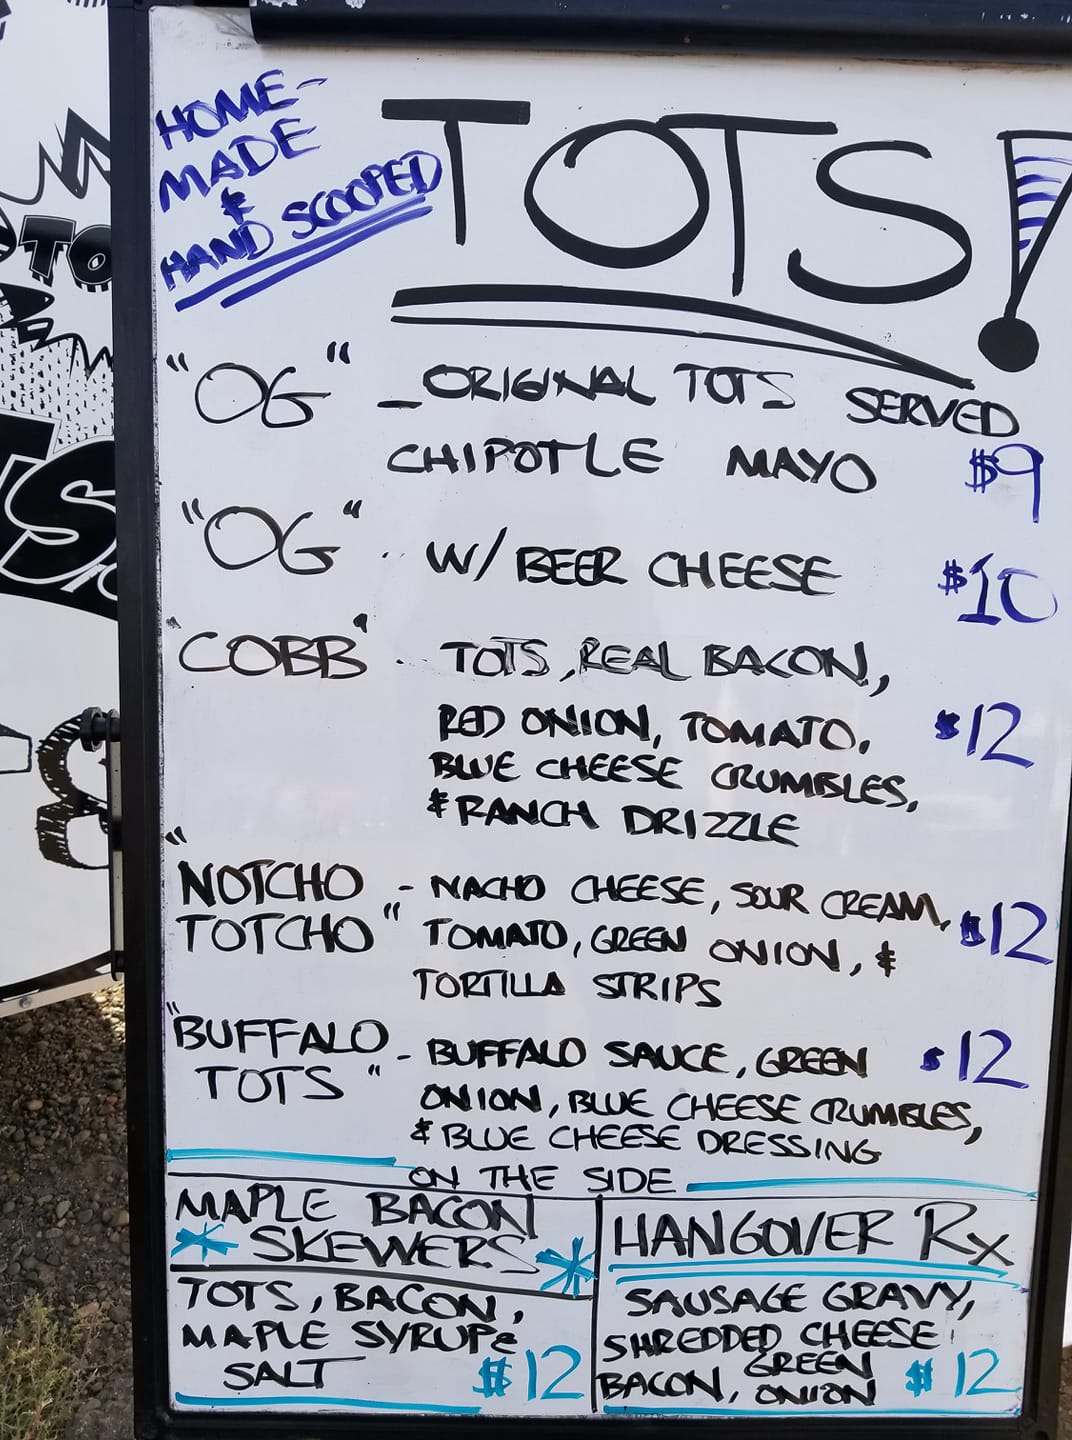 HOME-
MADE
&
HAND SCOOPED
TOTS!
"OG" - ORIGINAL TOTS SERVED
CHIPOTLE MAYO $9
"OG" .. W/ BEER CHEESE $10
"COBB" .. TOTS, REAL BACON,
RED ONION, TOMATO, $12
BLUE CHEESE CRUMBLES,
& RANCH DRIZZLE
"NOTCHO - NACHO CHEESE, SOUR CREAM, $12
TOTCHO" TOMATO, GREEN ONION, &
TORTILLA STRIPS
"BUFFALO - BUFFALO SAUCE, GREEN $12
TOTS" ONION, BLUE CHEESE CRUMBLES,
& BLUE CHEESE DRESSING
ON THE SIDE
MAPLE BACON
* SKEWERS *
TOTS, BACON,
MAPLE SYRUP &
SALT $12
HANGOVER Rx
SAUSAGE GRAVY,
SHREDDED CHEESE,
BACON, GREEN ONION $12